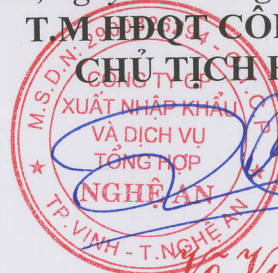 T.M HĐQT CÔ
CHỦ TỊCH
M.S.D.N:
CÔNG TY CP
XUẤT NHẬP KHẨU
VÀ DỊCH VỤ
TỔNG HỢP
NGHỆ AN
TP.VINH - T.NGHỆ AN